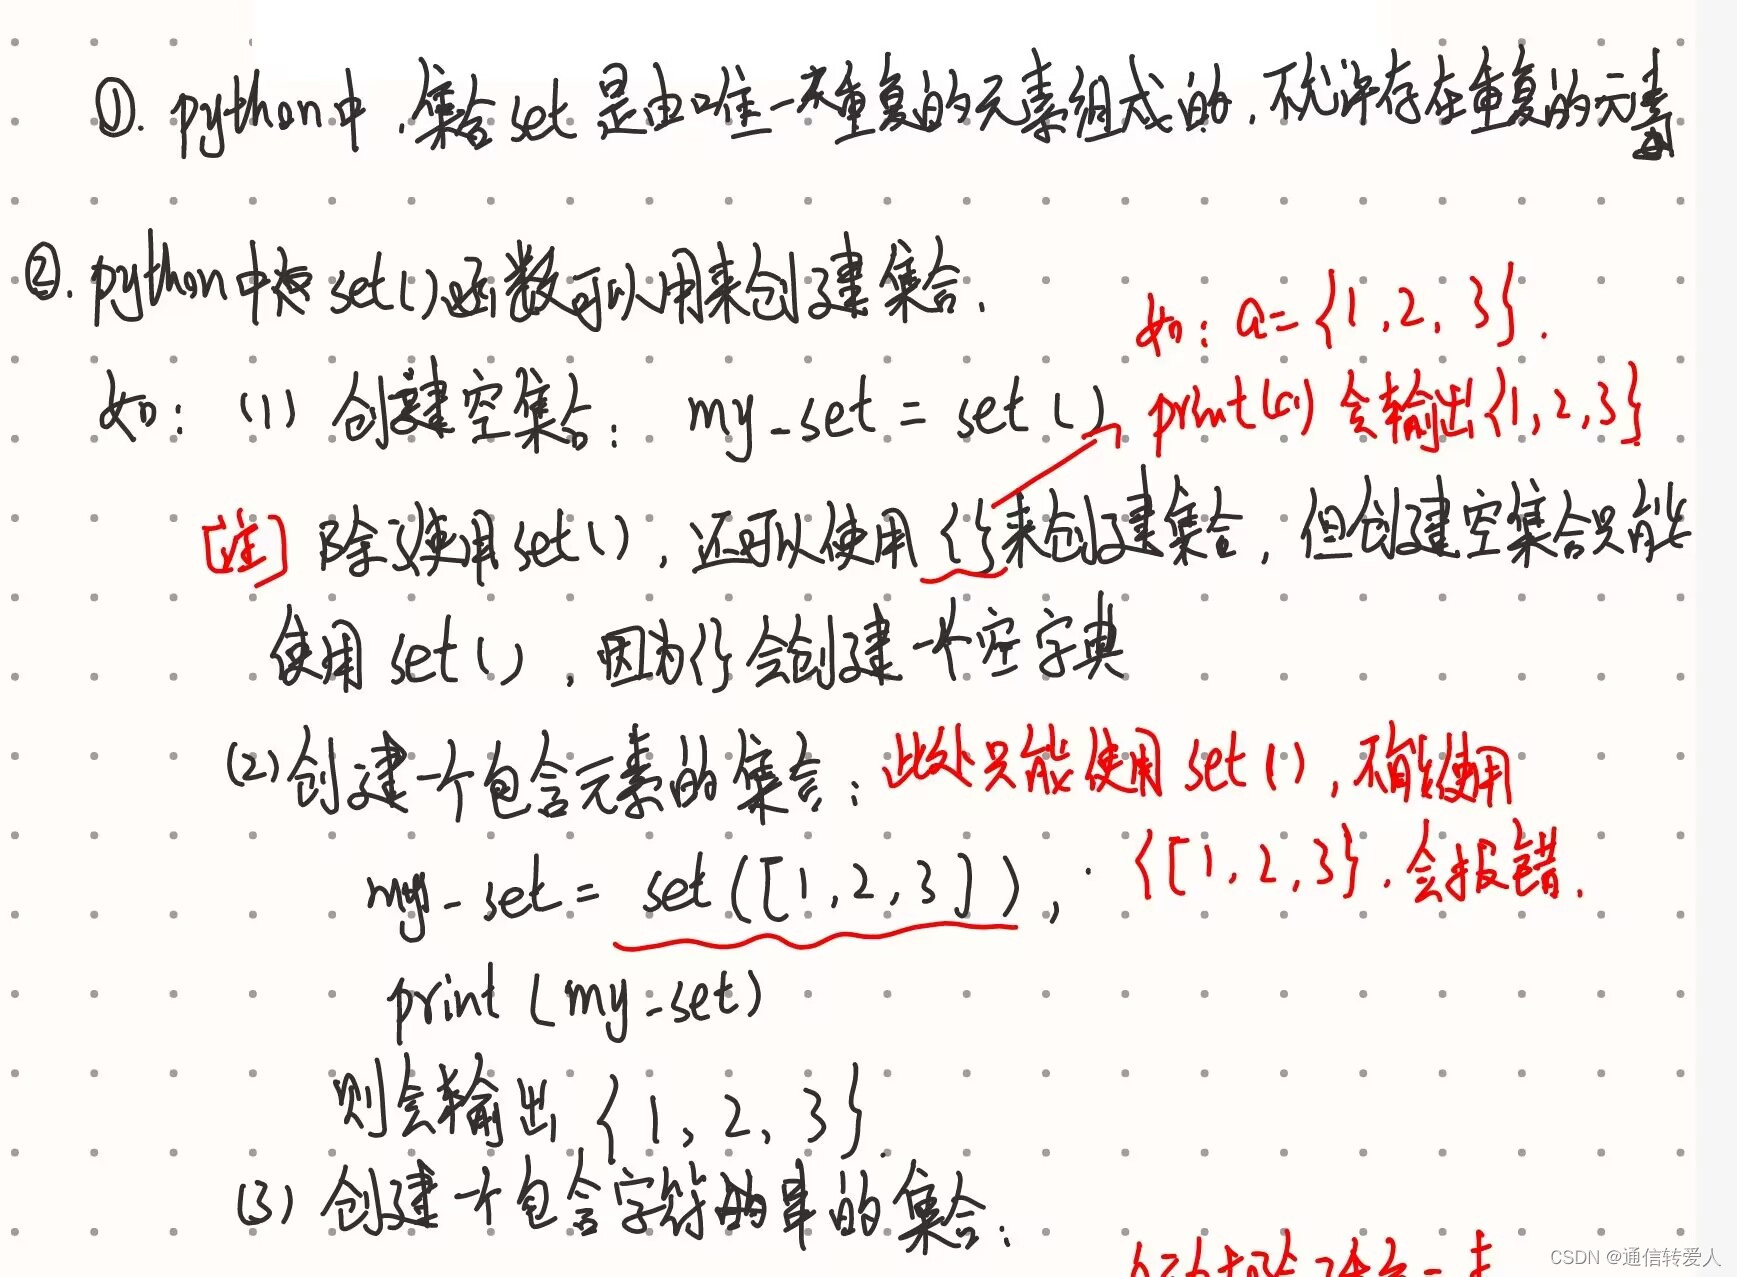 ①. python中，集合set是由唯一不重复的元素组成的，不允许存在重复的元素
②. python中 set()函数可以用来创建集合.
如：a={1,2,3}.
如：(1) 创建空集合：my_set = set()
print(a) 会输出{1,2,3}
[注] 除了使用set()，还可以使用{}来创建集合，但创建空集合只能
使用set()，因为{}会创建一个空字典
(2)创建一个包含元素的集合：此处只能使用set()，不能使用
my_set = set([1,2,3])， {[1,2,3}，会报错.
print(my_set)
则会输出{1,2,3}.
(3) 创建一个包含字符串的集合：
CSDN @通信转爱人